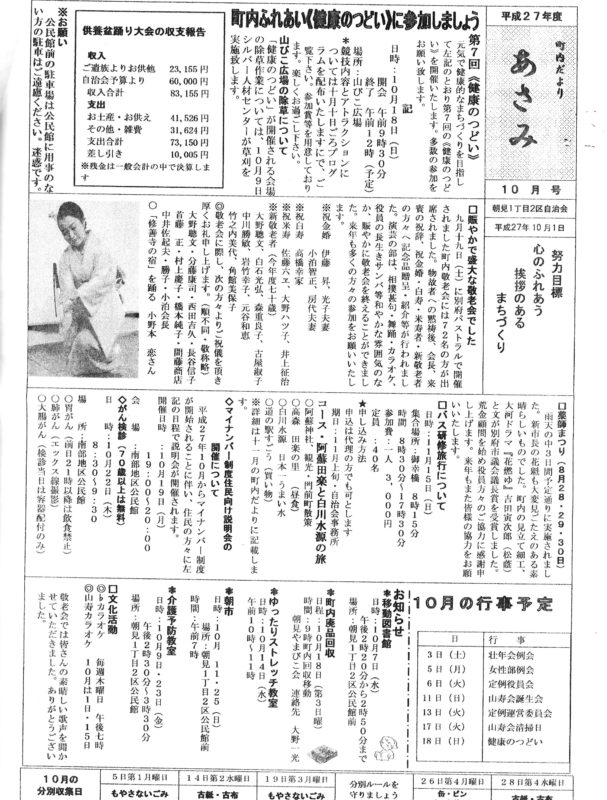 平成２７年度
町内だより
あさみ
１０月号
朝見１丁目２区自治会
平成２７年１０月１日
努力目標
心のふれあう
挨拶のある
まちづくり
町内ふれあい《健康のつどい》に参加しましょう
第７回《健康のつどい》
元気で健康的なまちづくりを目指し
て左記のとおり第７回の《健康のつど
い》を開催いたします。多数の参加を
お願い致します。
記
日時：１０月１８日（日）
開会　午前９時３０分
終了　午前１２時（予定）
場所：山びこ広場
＊競技内容とアトラクションに
ついては十月十日ごろプログ
ラムを配布いたしますにで、ご
覧下さい。参加賞等を用意しており
ます。楽しくお過ごし下さい。
山びこ広場の除草について
《健康のつどい》が開催される会場
の除草作業については、１０月９日
シルバー人材センターが草刈を
実施致します。
供養盆踊り大会の収支報告
収入
ご遺族よりお供他　２３,１５５円
自治会予算より　６０,０００円
収入合計　８３,１５５円
支出
お土産・お供え　４１,５２６円
その他・雑費　３１,６２４円
支出合計　７３,１５０円
差し引き　１０,００５円
※残金は一般会計の中で決算しま
す
※お願い
公民館前の駐車場は公民館に用事のな
い方の駐車はご遠慮ください。迷惑です。
□賑やかで盛大な敬老会でした
九月十九日（土）に別府パストラルで開催
されました町内敬老会には７２名の方が出
席されました。物故者への黙祷後、会長、来
賓の祝辞、祝金婚・白寿・米寿者・新敬老者
の方々へ記念品贈呈・紹介等が行われまし
た。演芸の部は、相撲甚句・舞踊・カラオケ、
役員の長生きルンバ等和やかな雰囲気のな
か、賑やかに敬老会を終えることができまし
た。来年も多くの方々の参加をお願いいたし
ます。
※祝金婚　伊藤　昇、光子夫妻
小泊智正、房代夫妻
※祝白寿　高橋幸家
※祝米寿　佐藤六ヱ、大野ハツ子、井上征治
※新敬老者（今年度七十歳）
大野聰文、白石光弘、森重良子、古屋淑子
中川勝敏、岩竹幸子、元谷和恵
竹之内美代、角館美保子
◎敬老会に際し、次の方々よりご祝儀を頂き
厚くお礼申し上げます。（順不同・敬称略）
大野聰文・分藤康司・西田吉久・長谷信子
首藤　正・村上慶子・橋本純子・間藤商店
中井佐起夫・勝子・小泊会長
○「修善寺の宿」を踊る　小野本　恋さん
□薬師まつり（８月２８・２９・３０日）
雨天の中３日間予定通りに実施されまし
た。新市長の花魁も大変見ごたえのある素
晴らしいものでした。町内の見立て細工、
大河ドラマ『花燃ゆ』吉田寅次郎（松蔭）
と文が別府市議会議長賞を受賞しました。
荒金顧問を始め役員方々のご協力に感謝申
し上げます。来年もまた皆様の協力をお願
いいたします。
□バス研修旅行について
日時：１１月１５日（日）
集合場所　御幸橋　８時１５分
時間　８時３０分～１７時３０分
参加費：一人　３，０００円
定員　：４０名
★申し込み方法
申込は代理の方でも可とします
期日：１１月上旬・自治会事務所
コース・阿蘇田楽と白川水源の旅
○阿蘇神社　観光　門前町散策
○高森　田楽の里　（昼食）
○白川水源　日本一うまい水
○道の駅すごう（買い物）
※詳細は十一月の町内だよりに記載しま
す。
◇マイナンバー制度住民向け説明会の
開催について
平成２７年１０月からマイナンバー制度
が開始されることに伴い、住民の方々に左
記の日程で説明会が開催されます。
開催日時：１０月１９日（月）
１９：００～２０：００
会　場　：南部地区公民館
◇がん検診（７０歳以上は無料）
日　時：１０月２２日（木）
８：３０～９：３０
場　所：南部地区公民館
○胃がん（前日２１時以降は飲食禁止）
○肺がん（エックス線撮影）
○大腸がん（検診当日は容器配付のみ）
１０月の行事予定
日　行事
３日（土）　壮年会例会
５日（月）　女性部例会
６日（火）　定例役員会
１１日（日）　山寿会誕生会
１３日（火）　定例運営委員会
１７日（火）　山寿会清掃日
１８日（日）　健康のつどい
お知らせ
＊移動図書館
日時：１０月２７日（水）
午後２時２０分から２時５０分まで
場所：朝見１丁目２区公民館
＊町内廃品回収
日程：１０月１８日（第３日曜）
時間：９時町内回収移動
朝見やまびこ会　連絡先　大野一光
＊ゆったりストレッチ教室
日時：１０月１４日（水）
午前１０時～１１時
＊朝市
日時：１０月１１・２５（日）
場所：朝見１丁目２区公民館前
時間：午前７時
＊介護予防教室
日時：１０月９日・２３日（金）
午後２時３０分～３時３０分
場所：朝見１丁目２区公民館
□文化活動
◎カラオケ　毎週木曜日　午後七時
◎山寿カラオケ　１０月は１日・１５日
敬老会では皆さんの素晴しい歌声を聞か
せていただきました。ありがとうござい
ました。
１０月の
分別収集日
５日第１月曜日
もやさないごみ
１４日第２水曜日
古紙・古布
１９日第３月曜日
もやさないごみ
分別ルールを
守りましょう
２６日第４月曜日
缶・ビン
２８日第４水曜日
古紙・古布